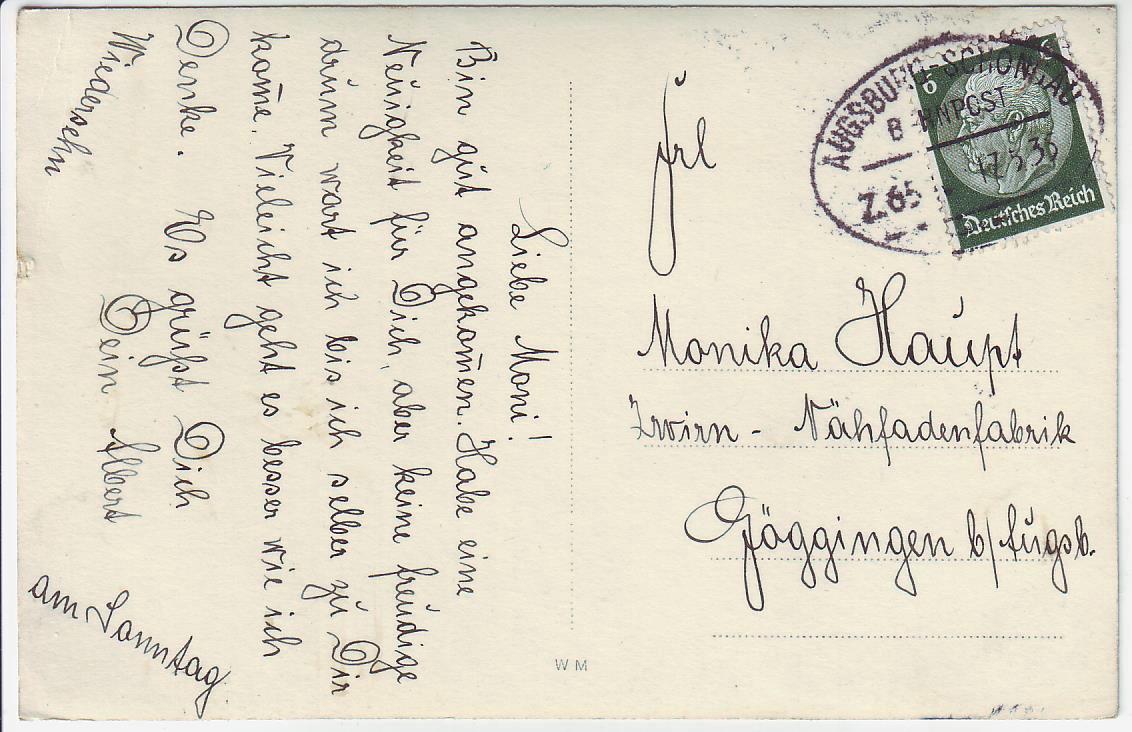 Liebe Moni!
Bin gut angekom̄en. Habe eine
Neuigkeit für Dich, aber keine freudige
drum wart ich bis ich selber zu Dir
kom̄e. Vieleicht geht es besser wie ich
Denke. Es grüßt Dich
Dein Albert
Wiedersehn
am Sonntag.
AUGSBURG-SCHONGAU
BAHNPOST
Z.65
17.5.36
6
6
Deutsches Reich
Frl
Monika Haupt
Zwirn - Nähfadenfabrik
Göggingen b/Augsb.
WM